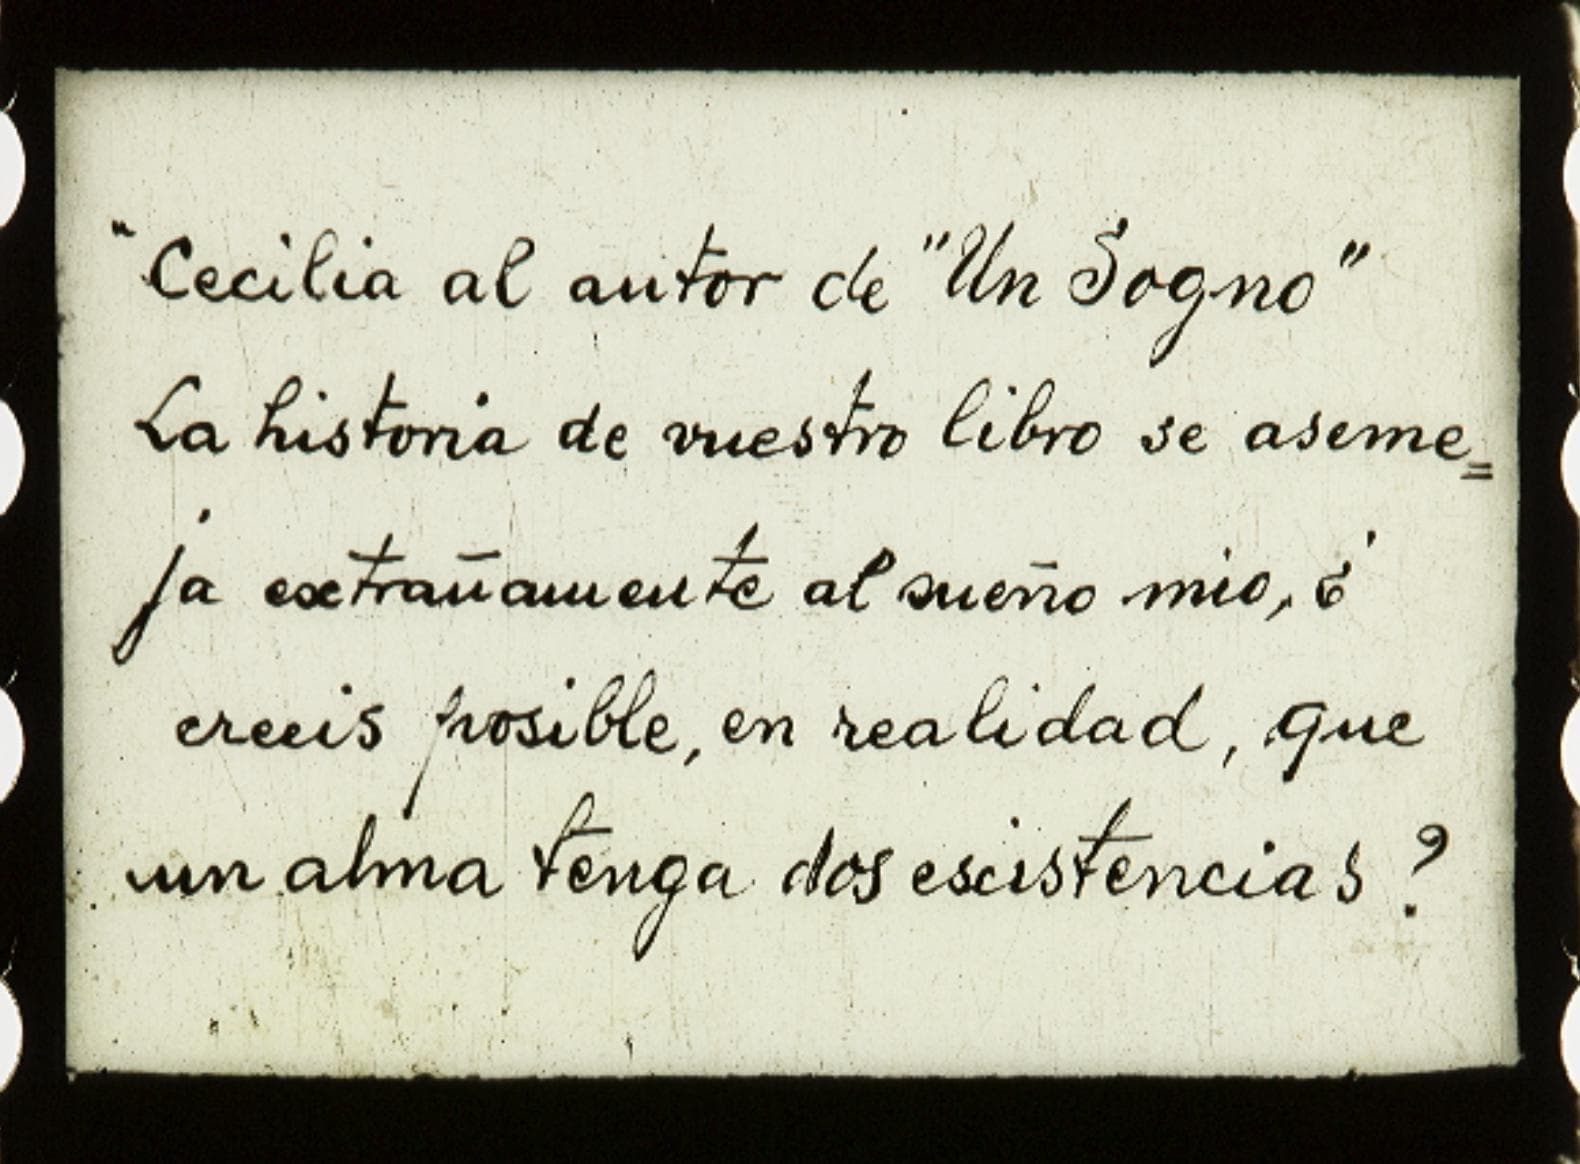 "Cecilia al autor de "Un Sogno"
La historia de vuestro libro se aseme=
ja extrañamente al sueño mio, ¿
creeis posible, en realidad, que
un alma tenga dos existencias?